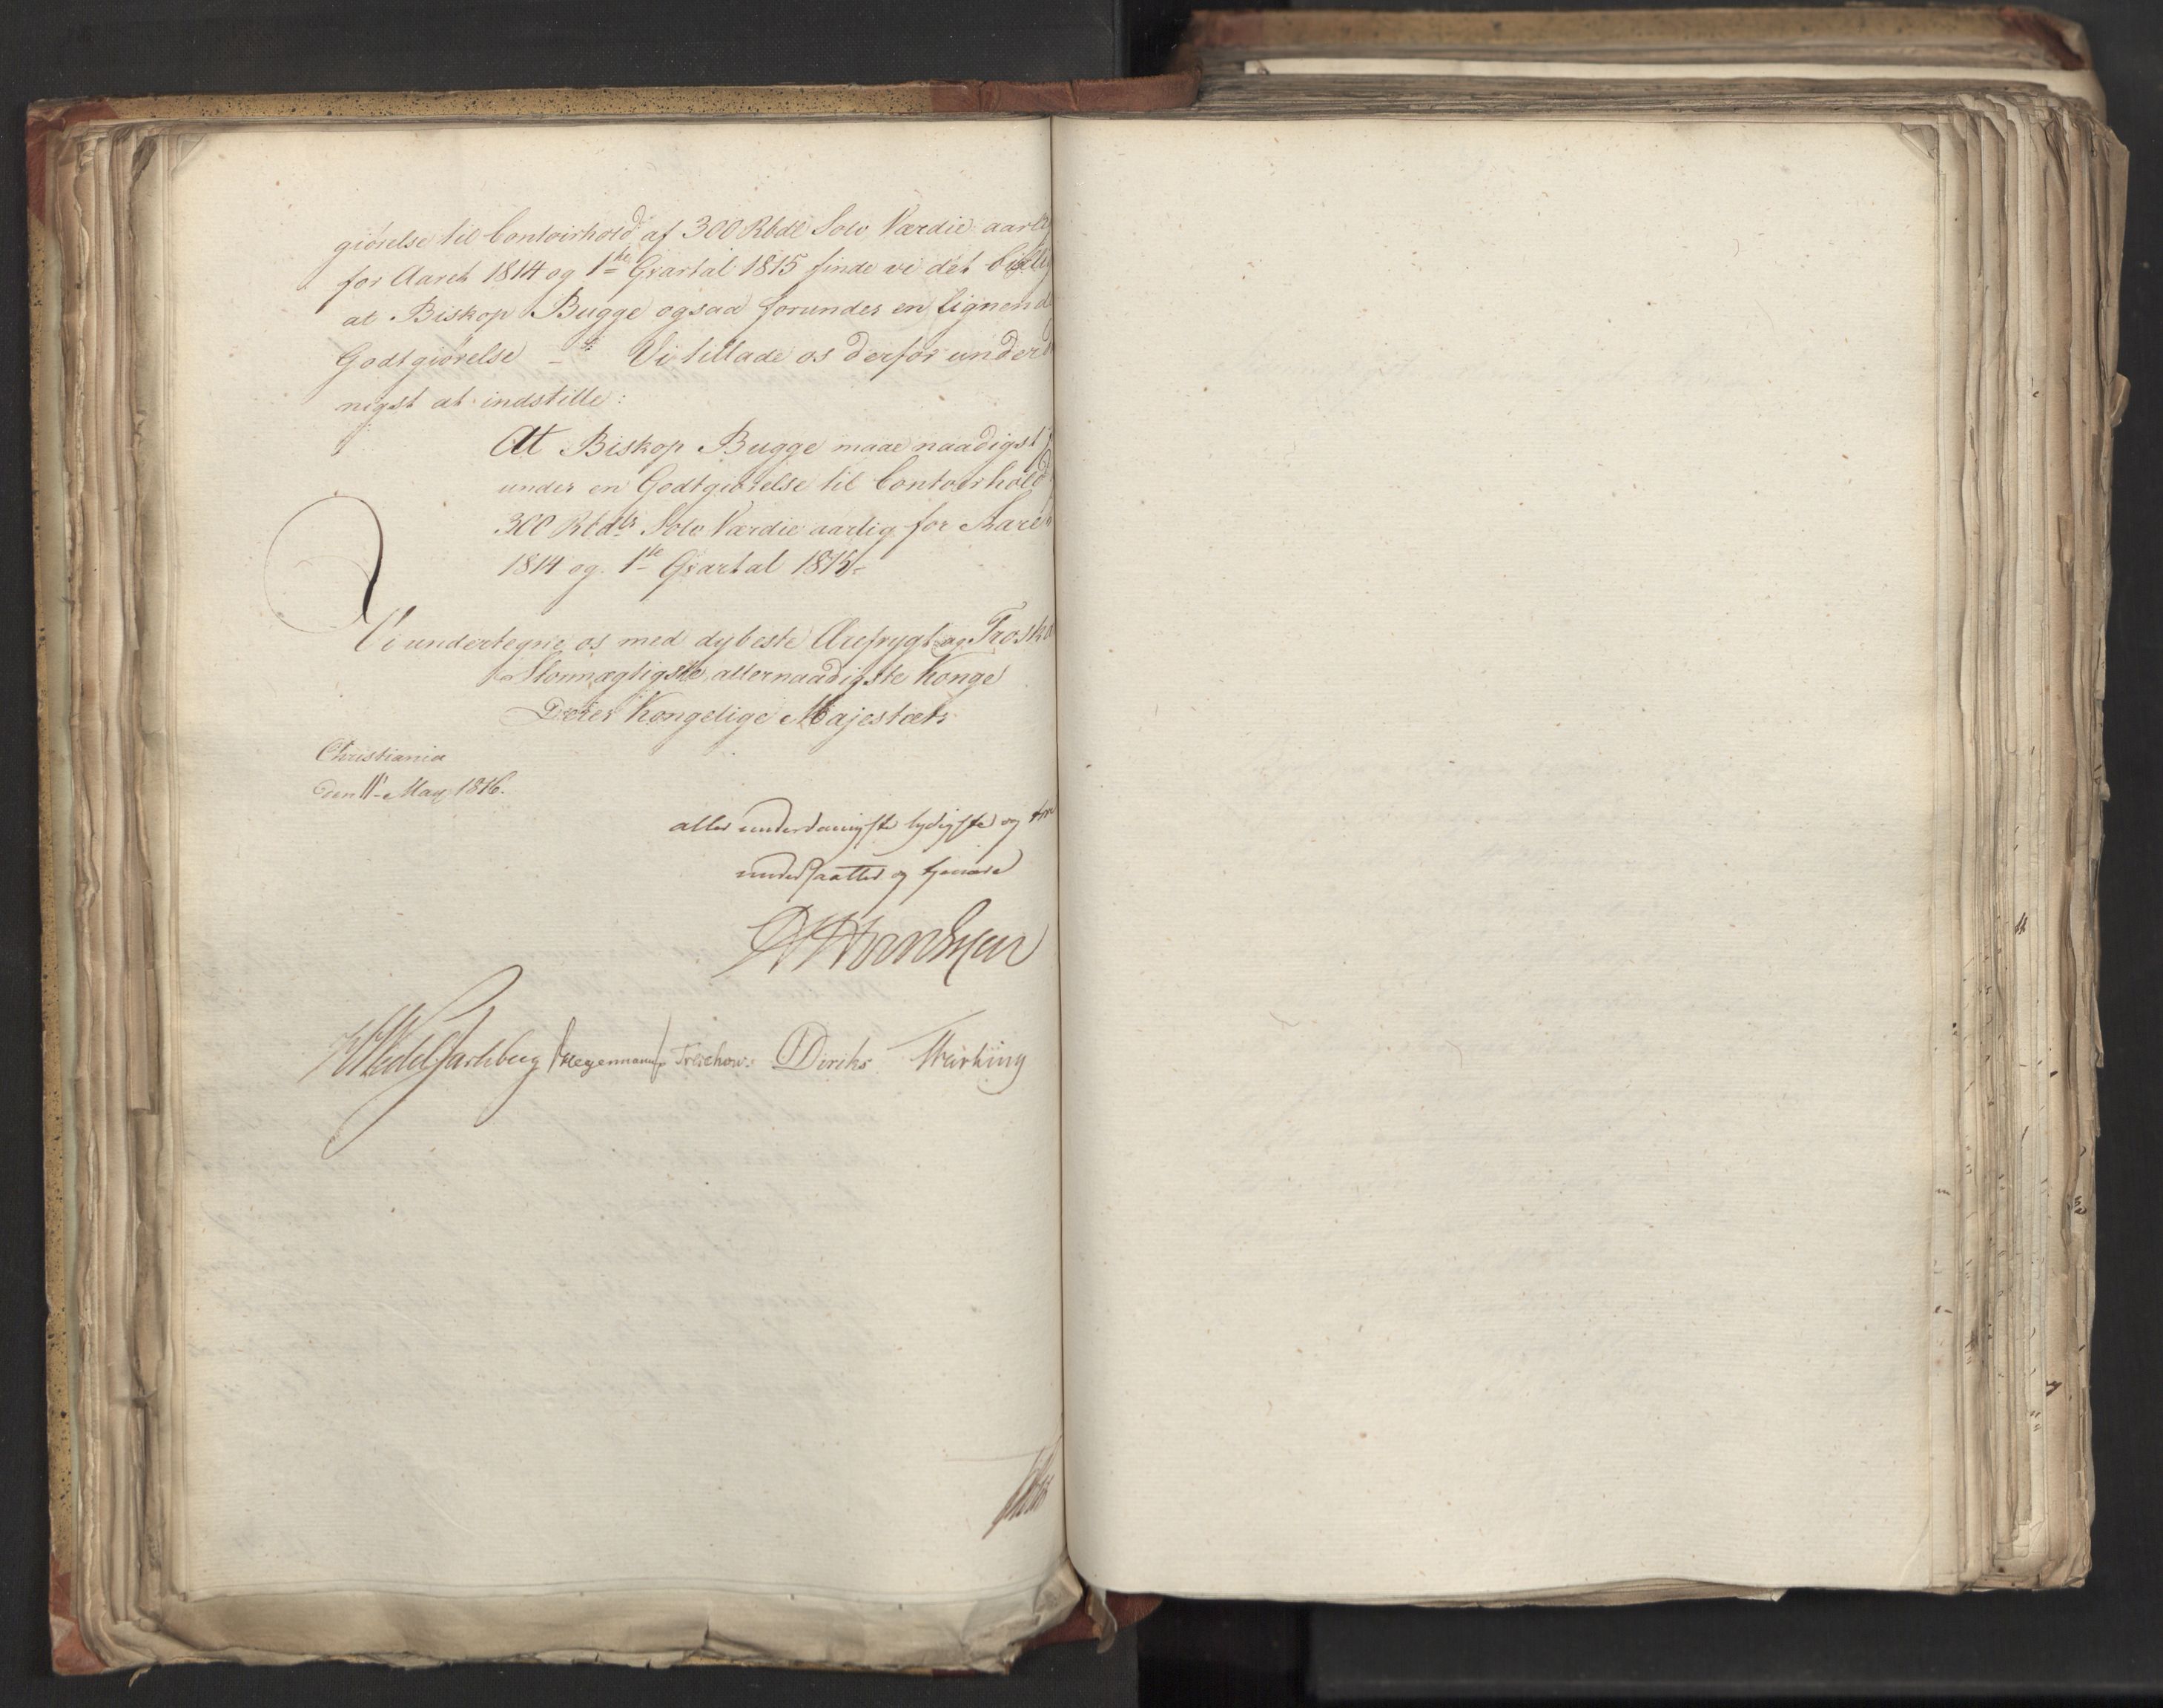 giørelse til Contoirhold af 300 Rbdl Sølv Værdie aarlig
for Aaret 1814 og 1ste Qvartal 1815 finde vi det billig
at Biskop Bugge ogsaa forundes en lignende
Godtgiørelse – Vi tillade os derfor under
nigst at indstille:
At Biskop Bugge maae naadigst
under en Godtgiørelse til Contoirhold
300 Rbdlr Sølv Værdie aarlig for Aaret
1814 og 1ste Qvartal 1815.
Vi undertegne os med dybeste Ærefrygt og Troska
Stormægtigste, allernaadigste Konge
Deres Kongelige Majestæts
Christiania
den 11 May 1816.
allerunderdanigste lydigste og
undersaatter og tjenere
Wedel Jarlsberg Hegermann Treschow. Diriks